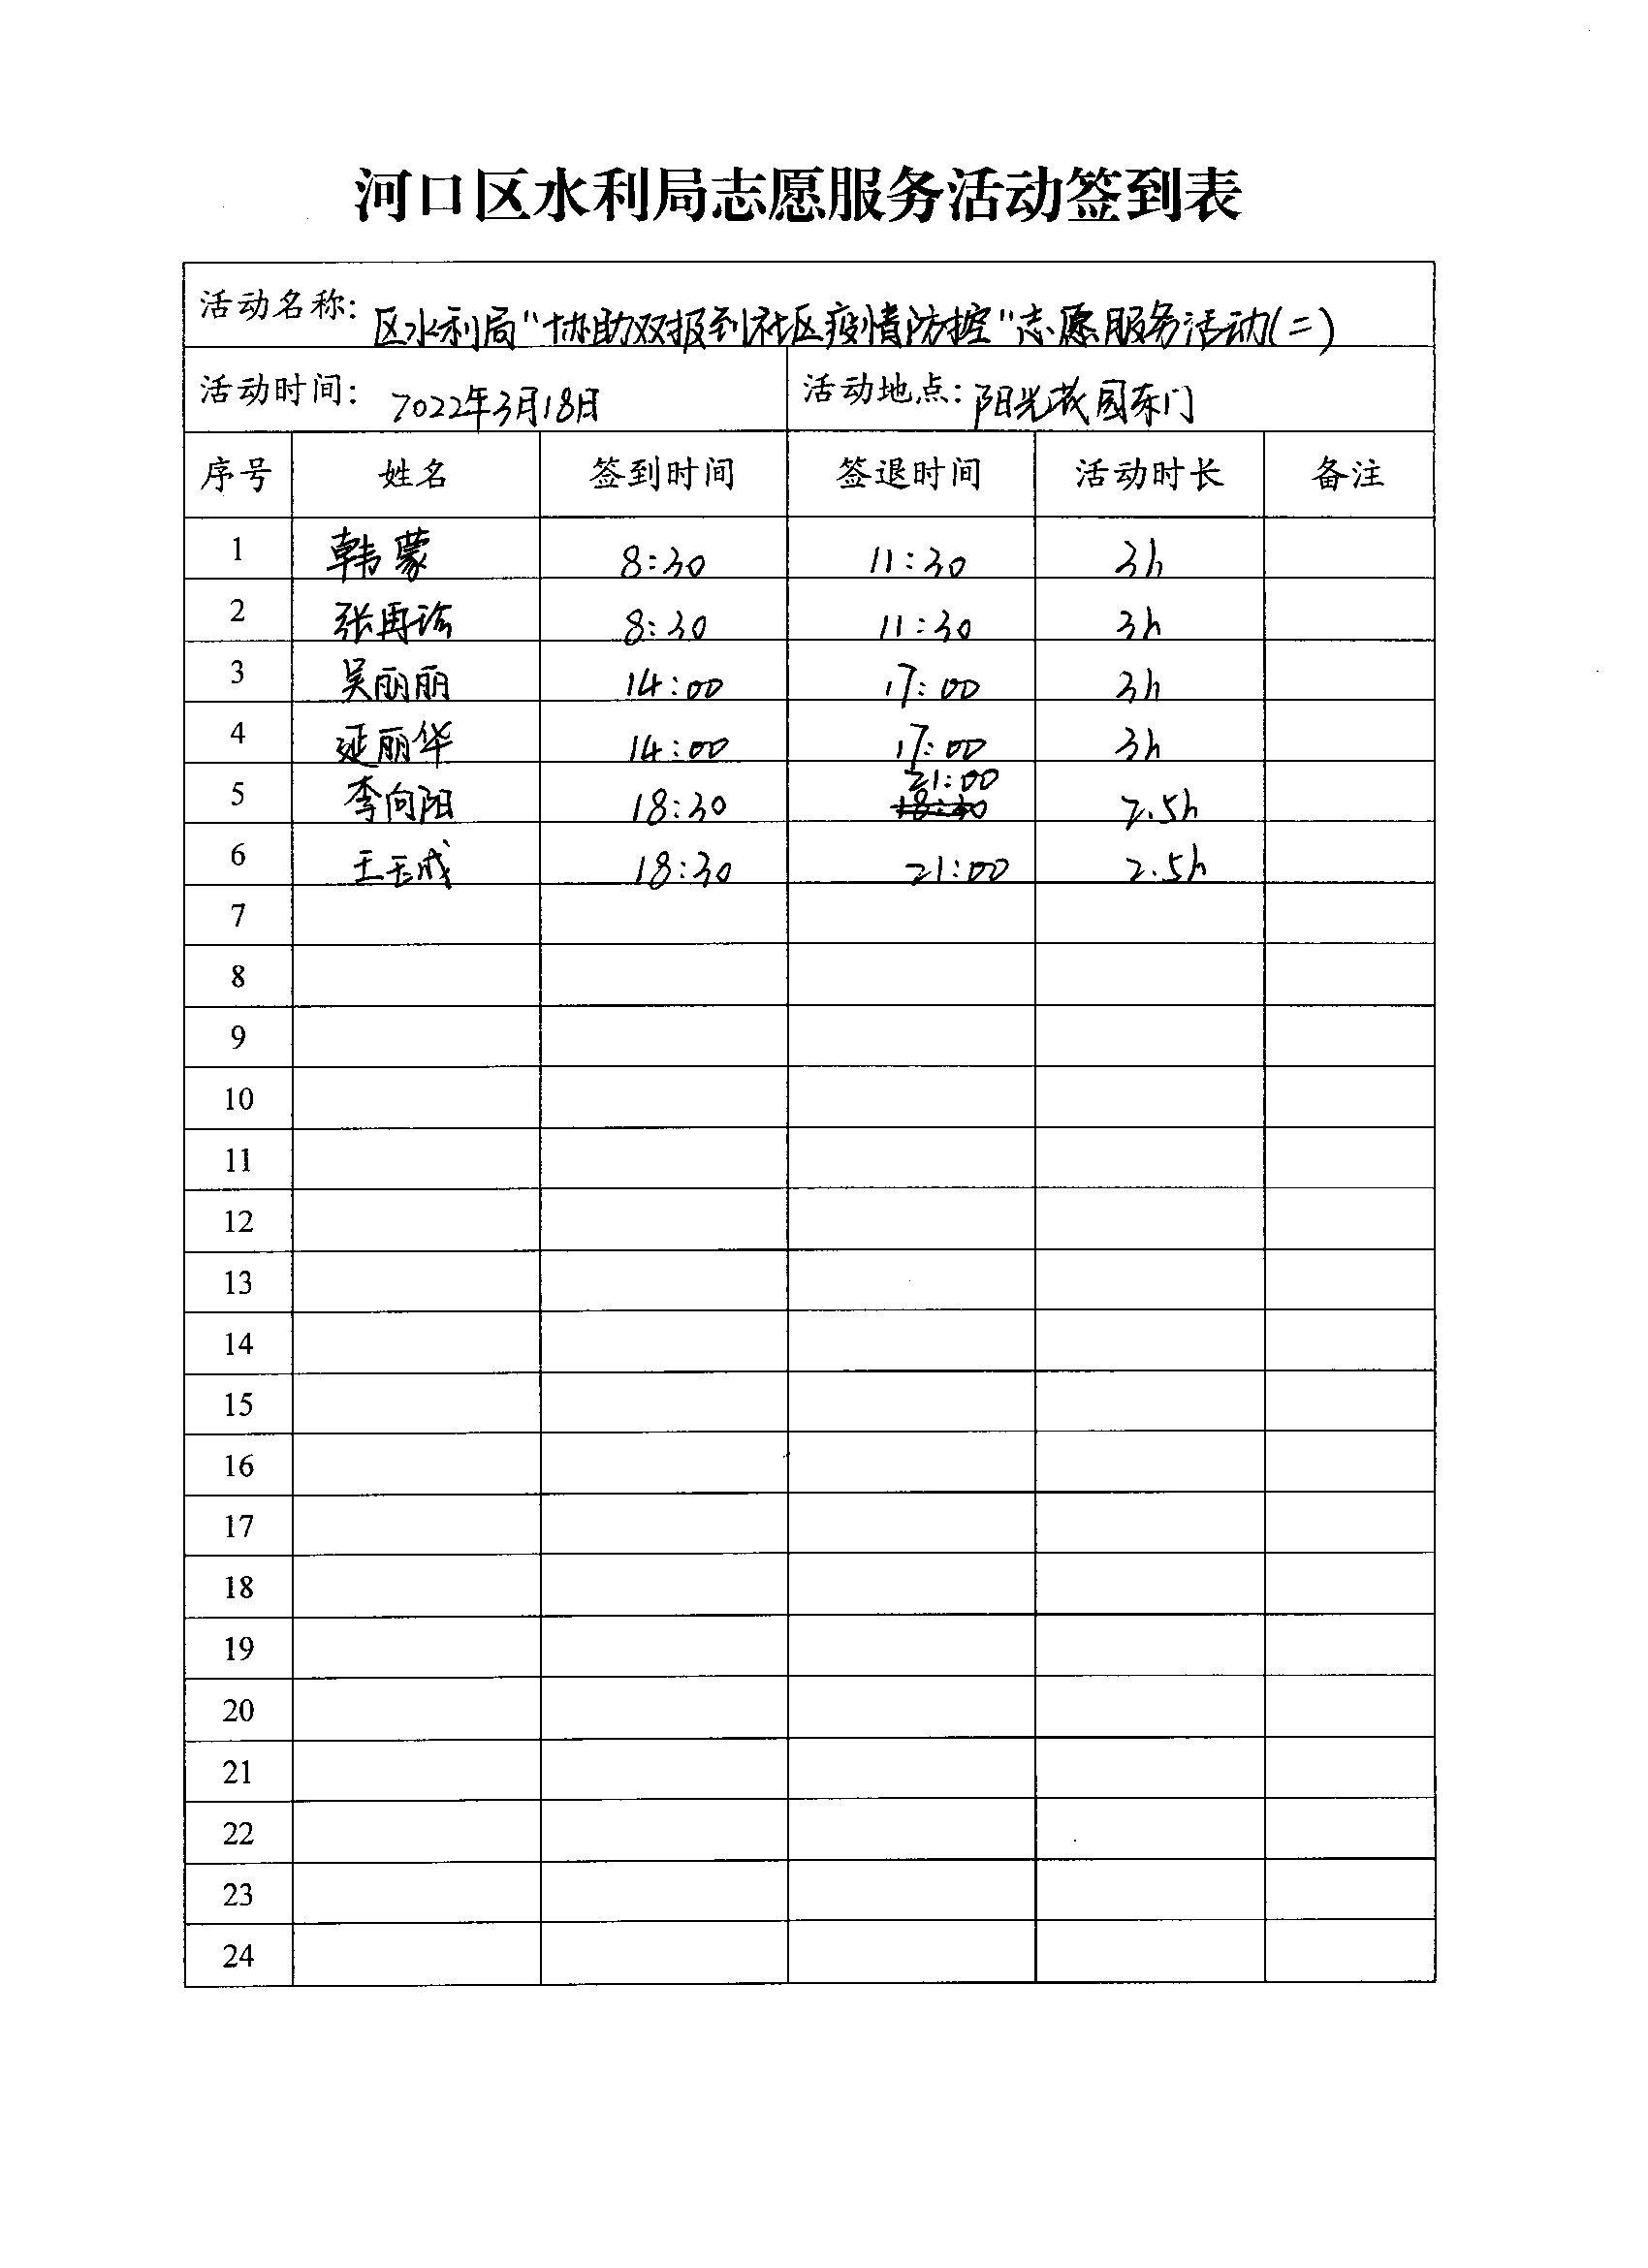 河口区水利局志愿服务活动签到表
活动名称: 区水利局"协助双报到社区疫情防控"志愿服务活动(二)
活动时间: 2022年3月18日 活动地点: 阳光花园东门
序号 姓名 签到时间 签退时间 活动时长 备注
1 韩蒙 8:30 11:30 3h
2 张再 8:30 11:30 3h
3 吴丽丽 14:00 17:00 3h
4 延丽华 14:00 17:00 3h
21:00
5 李向阳 18:30 18:30 2.5h
6 王玉成 18:30 21:00 2.5h
7
8
9
10
11
12
13
14
15
16
17
18
19
20
21
22
23
24